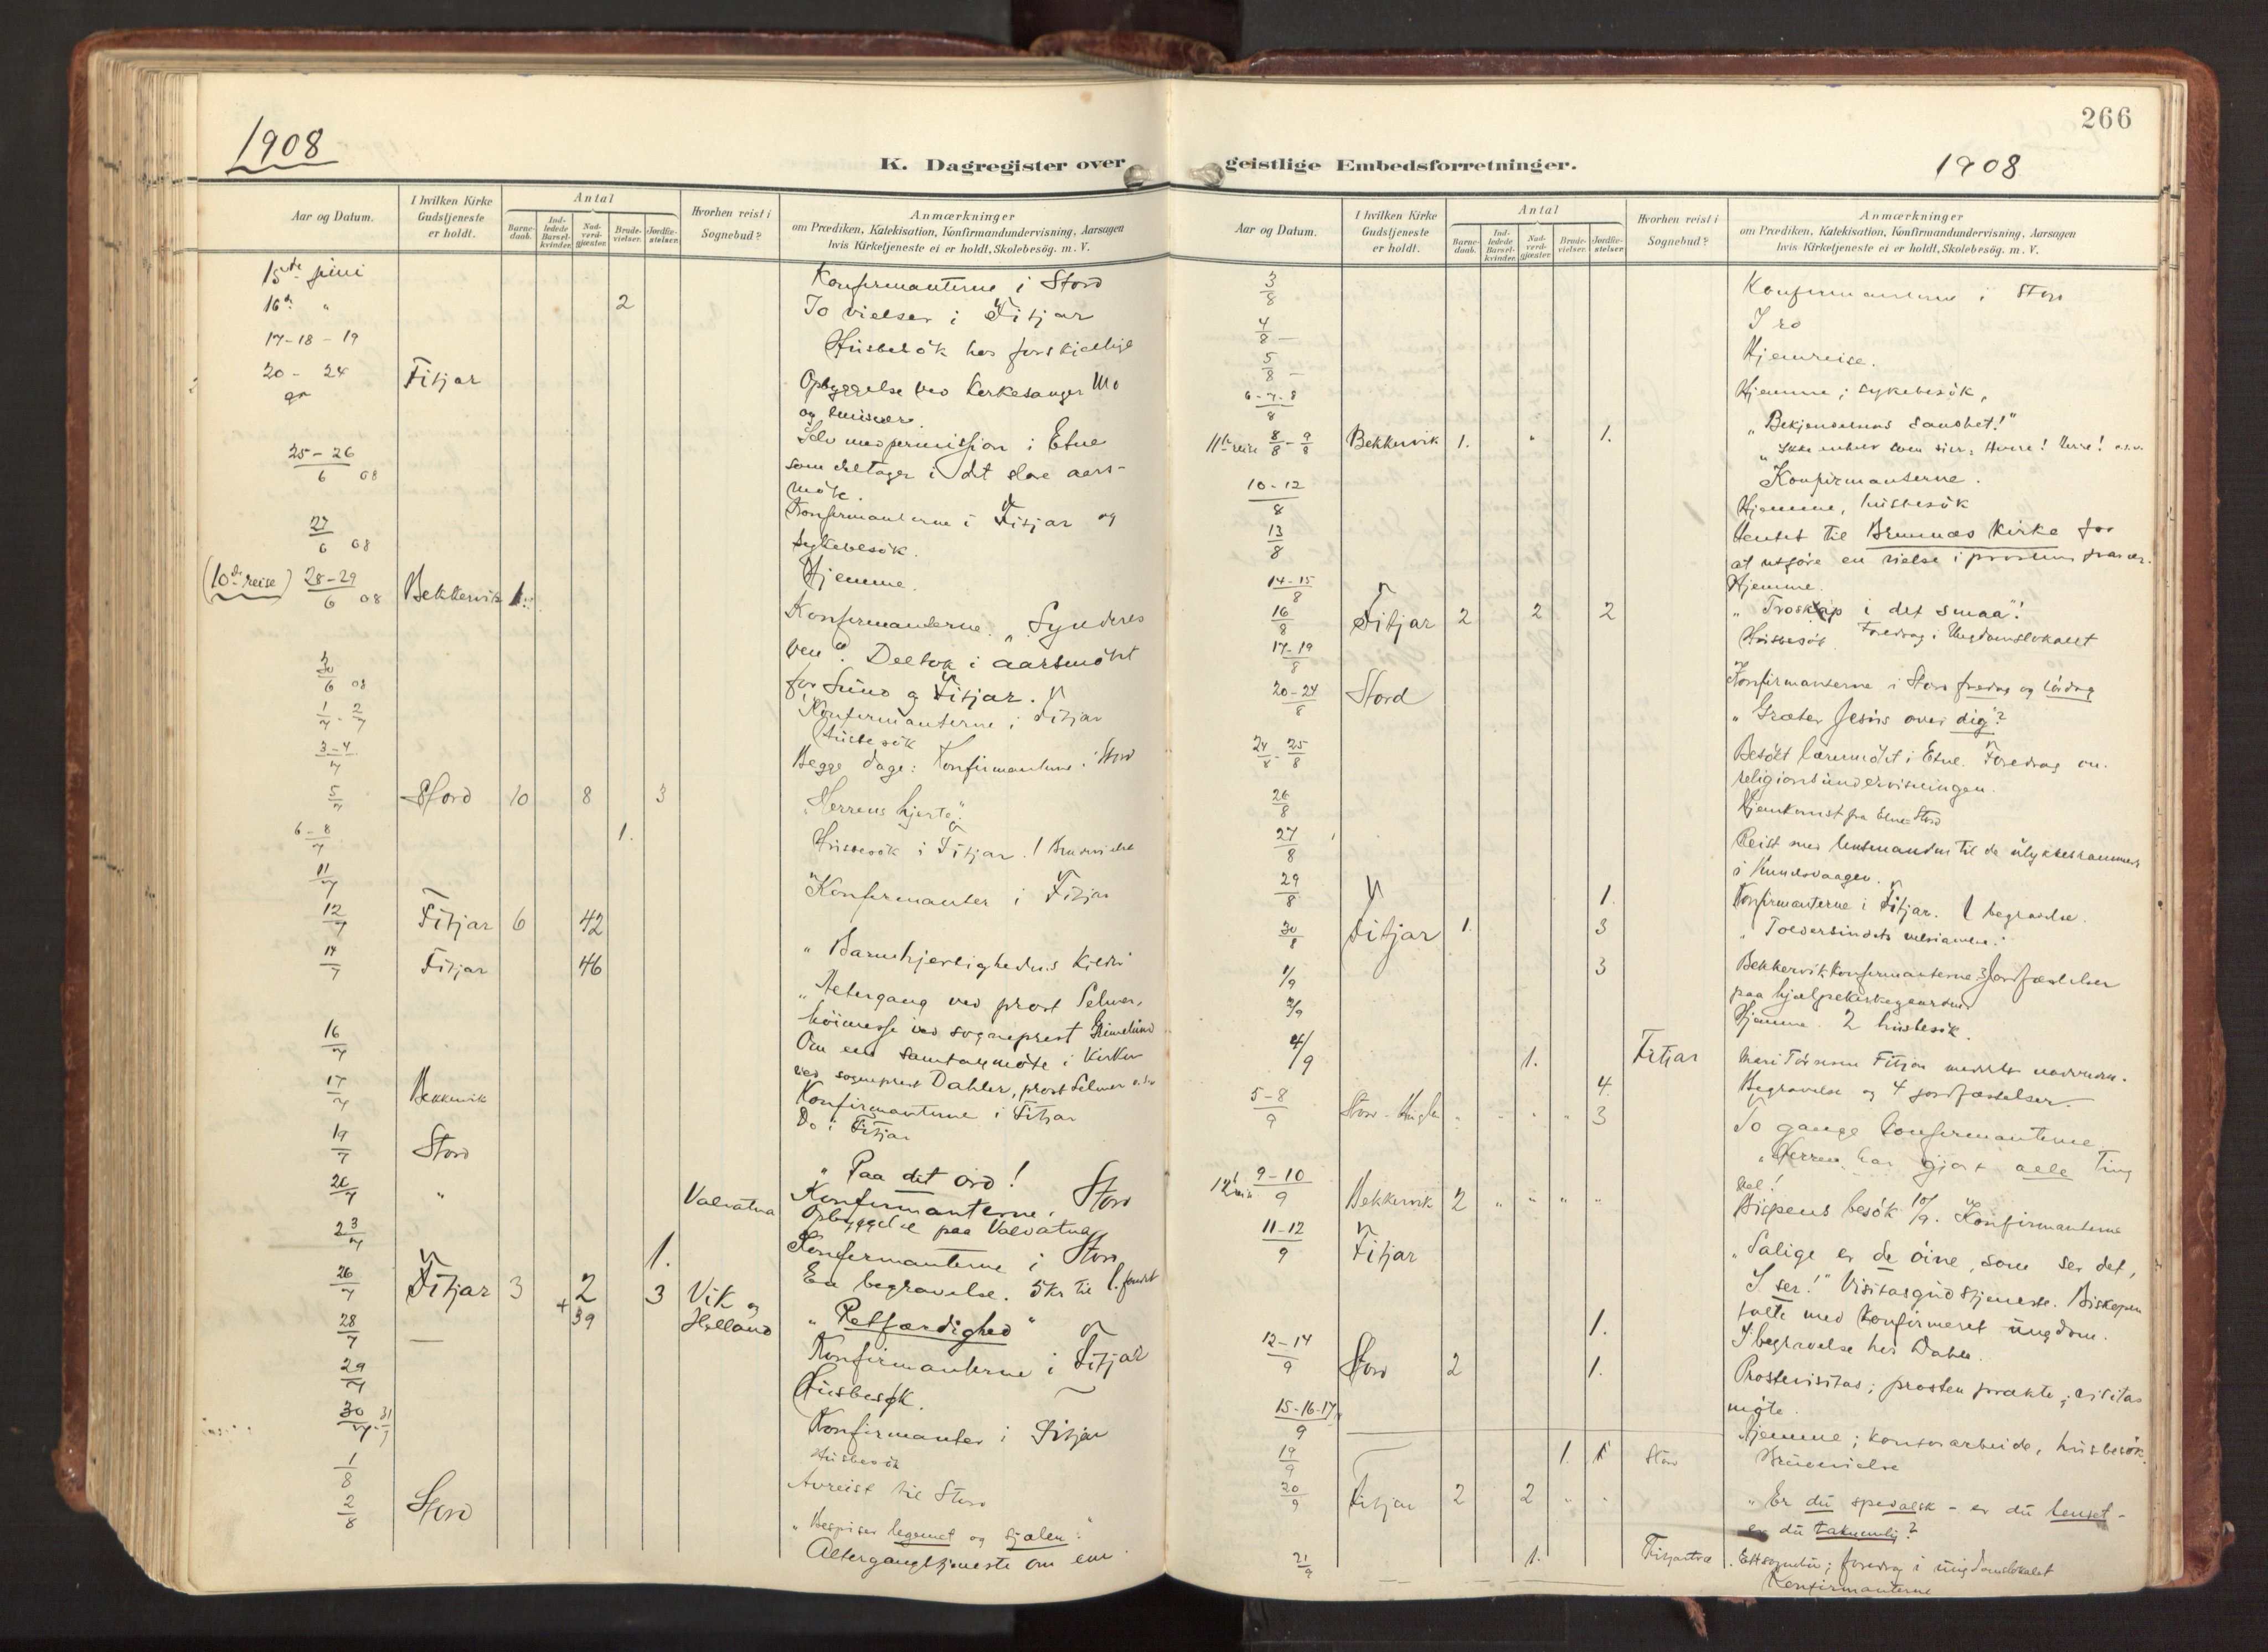 1908
K. Dagregister over
Aar og Datum.
I hvilken Kirke Gudstjeneste er holdt.
Antal
Barne-daab.
Ind-ledede Barsel-kvinder.
Nad-verd-gjæster.
Brude-vielser.
Jordfæ-stelser.
Hvorhen reist i Sognebud?
Anmærkninger
om Prædiken, Katekisation, Konfirmandundervisning, Aarsagen
hvis Kirketjeneste ei er holdt, Skolebesög. m. V.
15de juni Konfirmanterne i Stord
16de " 2 To vielser i Fitjar
17-18-19 Husbesök hos forskjellige
20-24 Fitjar Opbyggelse ved Kirkesanger Mo
og
25-26/6 08 Selv med permission i Etne
som deltager i det store aars-
möte.
27/6 08 Konfirmanterne i Fitjar og
Sykebesök.
Hjemme
(10de reise) 28-29/6 08 Bekkervik 1.
Konfirmanterne. "Synderes
ven". Deltok i aarsmötet
30/6 08 for og Fitjar.
1/7-2/7 Konfirmanterne i Fitjar
Husbesök
3-4/7 Begge dage: Konfirmanterne i Stord
5/7 Stord 10 8 3 "Herrens hjerte."
6-8/7 1. Husbesök i Fitjar. 1 Brudevielse
11/7 Konfirmanter i Fitjar
12/7 Fitjar 6 42
14/7 Fitjar 46 "Barmhjertighedens Kilde"
"Altergang ved prost Selmer,
höimesse ved sogneprest Grimelund
16/7 Om em samtalemöte i Kirken
ved sogneprest Dahler, prost Selmer o.s.v.
17/7 Bekkervik Konfirmanterne i Fitjar
Do i Fitjar
19/7 Stord
"Paa dit ord!
20/7 " Valvatna Konfirmanterne. Stord
Opbyggelse paa Valvatna
23/7 1. Konfirmanterne i Stord
En begravelse. 5 kr til l. fondet
26/7 Fitjar 3 2 + 39 3 Vik og Helland "Retfærdighed"
28/7 — Konfirmanterne i Fitjar
29/7 Husbesøk.
30/7-31/7 Konfirmanter i Fitjar
Husbesök
1/8 Avreist til Stord
2/8 Stord "Bespiser legemet og sjælen"
Altergangstjeneste om em
266
geistlige Embedsforretninger.
1908
Aar og Datum.
I hvilken Kirke Gudstjeneste er holdt.
Antal
Barne-daab.
Ind-ledede Barsel-kvinder.
Nad-verd-gjæster.
Brude-vielser.
Jordfæ-stelser.
Hvorhen reist i Sognebud?
Anmærkninger
om Prædiken, Katekisation, Konfirmandundervisning, Aarsagen
hvis Kirketjeneste ei er holdt, Skolebesög. m. V.
3/8 Konfirmanterne i Stord
4/8 — I ro
5/8 — Hjemreise.
6-7-8/8 Hjemme; sykebesök,
"Bekjendelsens sandhet!"
11te reise 8/8-9/8 Bekkervik 1. " 1. "Ikke enhver som sier: Herre! Herre! o.s.v.
Konfirmanterne.
10-12/8 Hjemme, husbesök
13/8 Hentet til Bremnæs Kirke for
at utgöre en vielse i prostens fravær.
14-15/8 Hjemme.
16/8 Fitjar 2 2 2 "Troskap i det smaa"!
17-19/8 Husbesök. Foredrag i Ungdomslokalet
20-24/8 Stord Konfirmanterne i Stord fredag og lördag
"Græter Jesus over dig"?
24/8-25/8 Besökt læremötet i Etne. Foredrag om
religionsundervisningen.
26/8 Hjemkomst fra Etne-Stord
27/8 Reist med lensmanden til de ulykkesrammede
i
29/8 1. Konfirmanterne i Fitjar. 1 begravelse.
30/8 Fitjar 1. 3
1/9 3 Bekkervik Konfirmanterne 3 Jordfæstelser
paa hjælpekirkegaarden
2/9 Hjemme. 2 husbesök.
4/9 1. Fitjar Fitjar meddelt nadverden.
4. Begravelse og 4 jordfæstelser.
5-8/9 Stord 3 To gange Konfirmanterne.
"Herren har gjort alle Ting
vel!
12te reise 9-10/9 Bekkervik 2 " " " " Bispens besök 10/9. Konfirmanterne
11-12/9 Fitjar "Salige er de öine, som ser det,
I ser!" Visitasgudstjeneste. Biskopen
talte med konfirmeret ungdom.
1. 1 begravelse hos Dahle.
12-14/9 Stord 2 1. Prostevisitas; prosten prækte; visitas
möte.
15-16-17/9 Hjemme; kontorarbeide, husbesök.
19/9 1. 1 Stord Brudevielse
20/9 Fitjar 2 2 " " "Er du spedalsk - er du renset -
er du taknemlig?
21/9 1. Fitjar foredrag i ungdomslokalet
Konfirmanterne